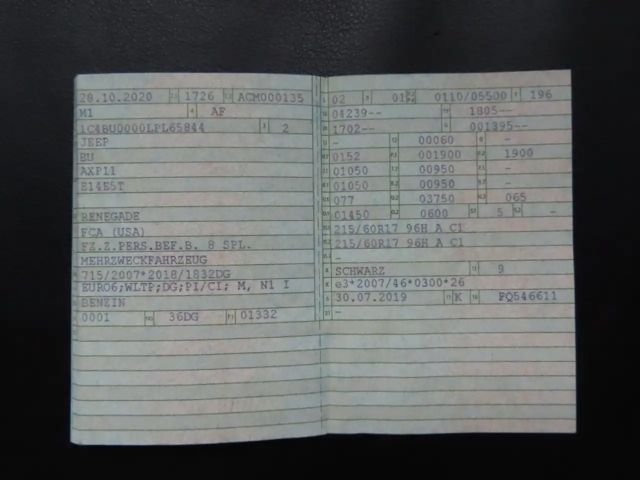 28.10.2020 1726 ACM000135
M1 AF
1C4BU0000LPL65844 2
JEEP
BU
AXP11
E14E5T
RENEGADE
FCA (USA)
FZ.Z.PERS.BEF.B. 8 SPL.
MEHRZWECKFAHRZEUG
715/2007*2018/1832DG
EURO6;WLTP;DG;PI/CI; M, N1 I
BENZIN
0001 36DG 01332
02 01 0110/05500 196
04239-- 1805--
1702-- 001395--
- 00060 -
0152 001900 1900
01050 00950 -
01050 00950 -
077 03750 065
01450 0600 5 -
215/60R17 96H A C1
215/60R17 96H A C1
-
SCHWARZ 9
e3*2007/46*0300*26
30.07.2019 K FQ546611
-